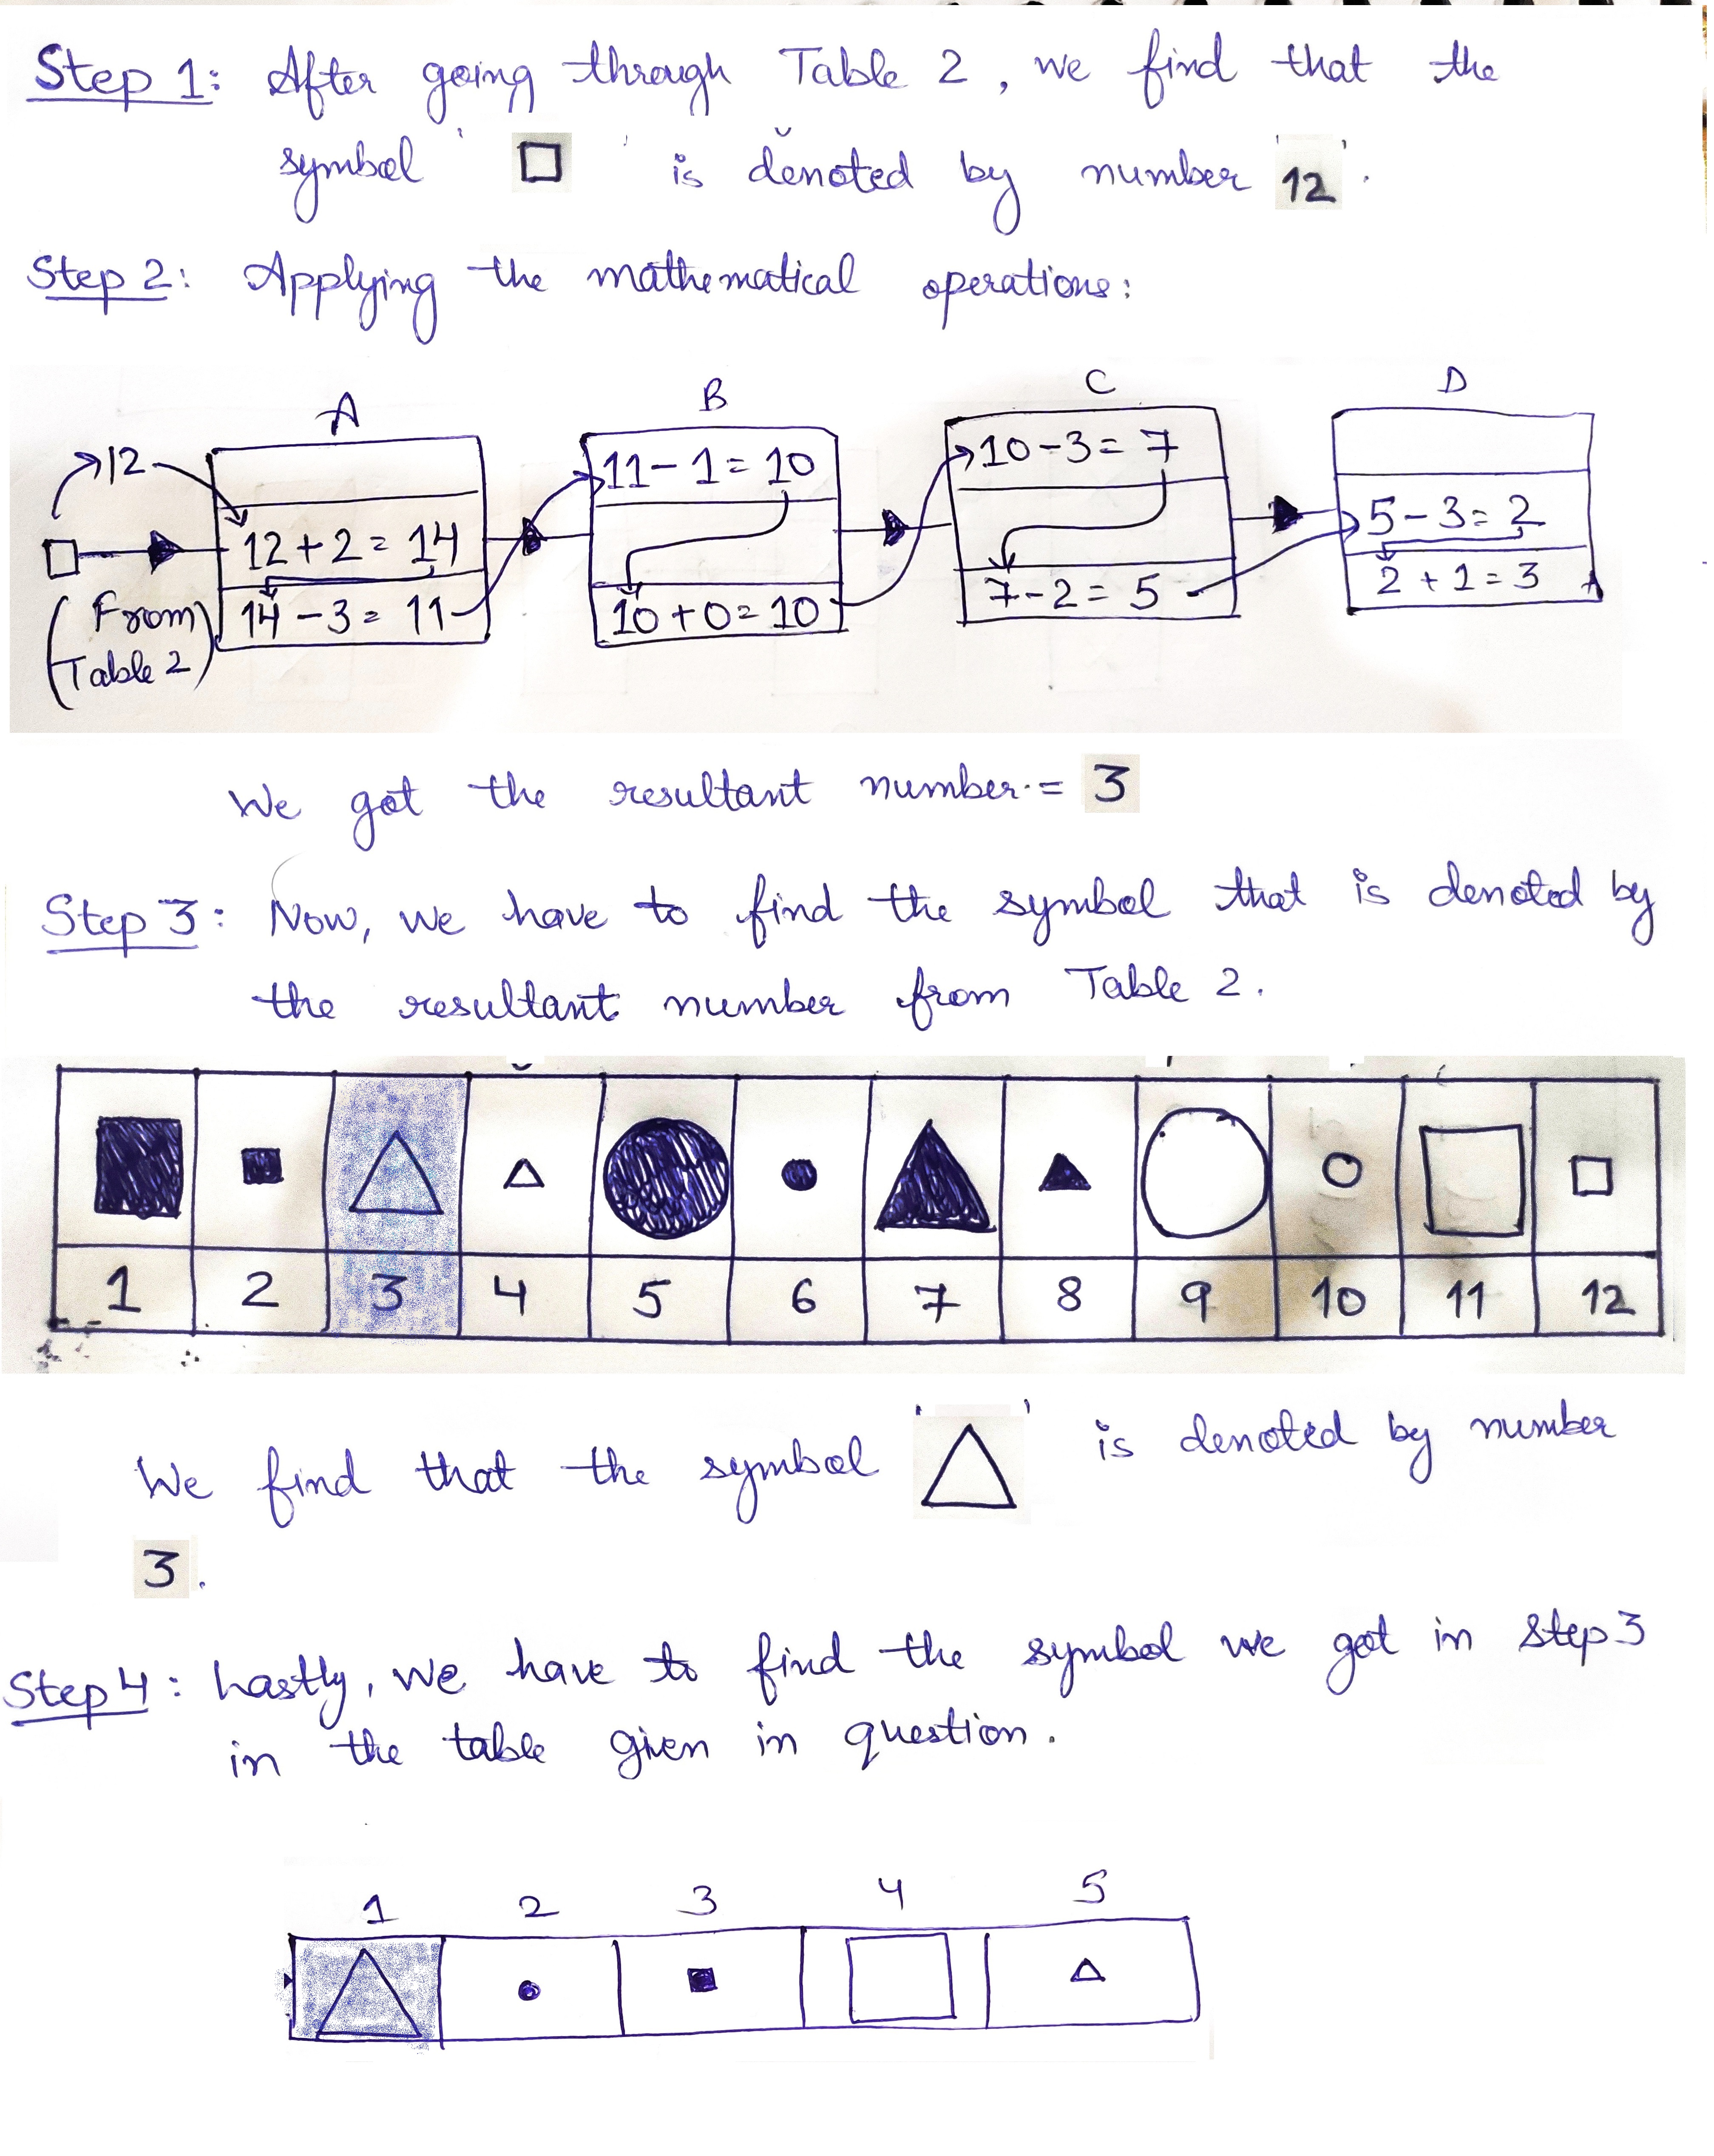 Step 1: After going through Table 2, we find that the
symbol '□' is denoted by number '12'.
Step 2: Applying the mathematical operations:
A B C D
12
11 - 1 = 10
10 - 3 = 7
12 + 2 = 14
5 - 3 = 2
(From Table 2)
14 - 3 = 11
10 + 0 = 10
7 - 2 = 5
2 + 1 = 3
We got the resultant number = 3
Step 3: Now, we have to find the symbol that is denoted by
the resultant number from Table 2.
1 2 3 4 5 6 7 8 9 10 11 12
We find that the symbol '△' is denoted by number
3.
Step 4: Lastly, we have to find the symbol we got in step 3
in the table given in question.
1 2 3 4 5